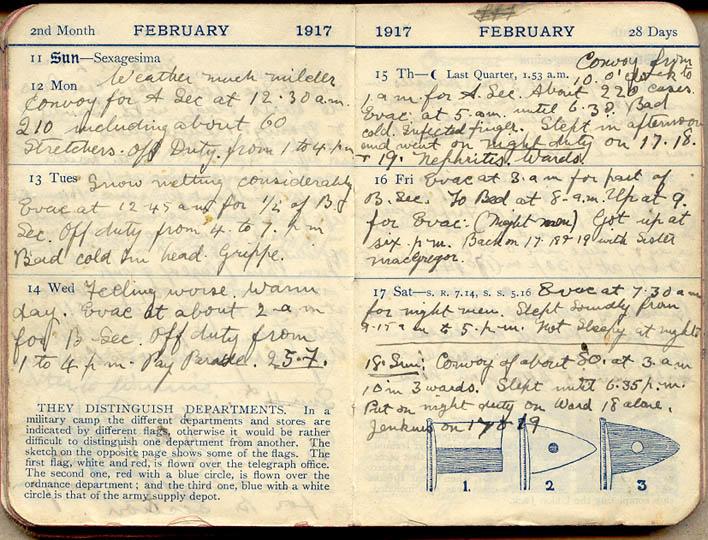 2nd Month FEBRUARY 1917
11 Sun—Sexagesima
12 Mon Weather much milder
Convoy for A Sec at 12.30 a.m.
210 including about 60
Stretchers. Off Duty. from 1 to 4 p.m
13 Tues Snow melting considerably
Evac at 12 45 a m for 1/2 of B
Sec. Off duty from 4 to 7. p.m
Bad cold in head. Grippe.
14 Wed Feeling worse. Warm
day. Evac at about 2 a m
for B Sec. Off duty from
1 to 4 p.m. Pay Parade. 25.7.
THEY DISTINGUISH DEPARTMENTS. In a
military camp the different departments and stores are
indicated by different flags, otherwise it would be rather
difficult to distinguish one department from another. The
sketch on the opposite page shows some of the flags. The
first flag, white and red, is flown over the telegraph office.
The second one, red with a blue circle, is flown over the
ordnance department; and the third one, blue with a
white circle is that of the army supply depot.
1917 FEBRUARY 28 Days
Convoy from
15 Th—☾ Last Quarter, 1.53 a.m. 10. o'clock to
1 a m for A. Sec. About 220 cases.
Evac. at 5 a.m. until 6.30. Bad
cold. Infected finger. Slept in afternoon
and went on night duty on 17. 18.
+ 19. Nephritis Wards.
16 Fri Evac at 3. a m for part of
B. Sec. To Bed at 8 a.m. Up at 9.
for Evac. (Night men) Got up at
six. p.m. Back on 17. 18 & 19 with Sister
MacGregor.
17 Sat—S. R. 7.14, S. S. 5.16 Evac at 7.30 a m
for night men. Slept soundly from
9.15 a m to 5. p.m. Not sleepy at night
18. Sun: Convoy of about 80. at 3. a m
10 in 3 wards. Slept until 6.35 p.m.
Put on night duty on Ward 18 alone.
Jenkins on 17 & 19
1. 2 3